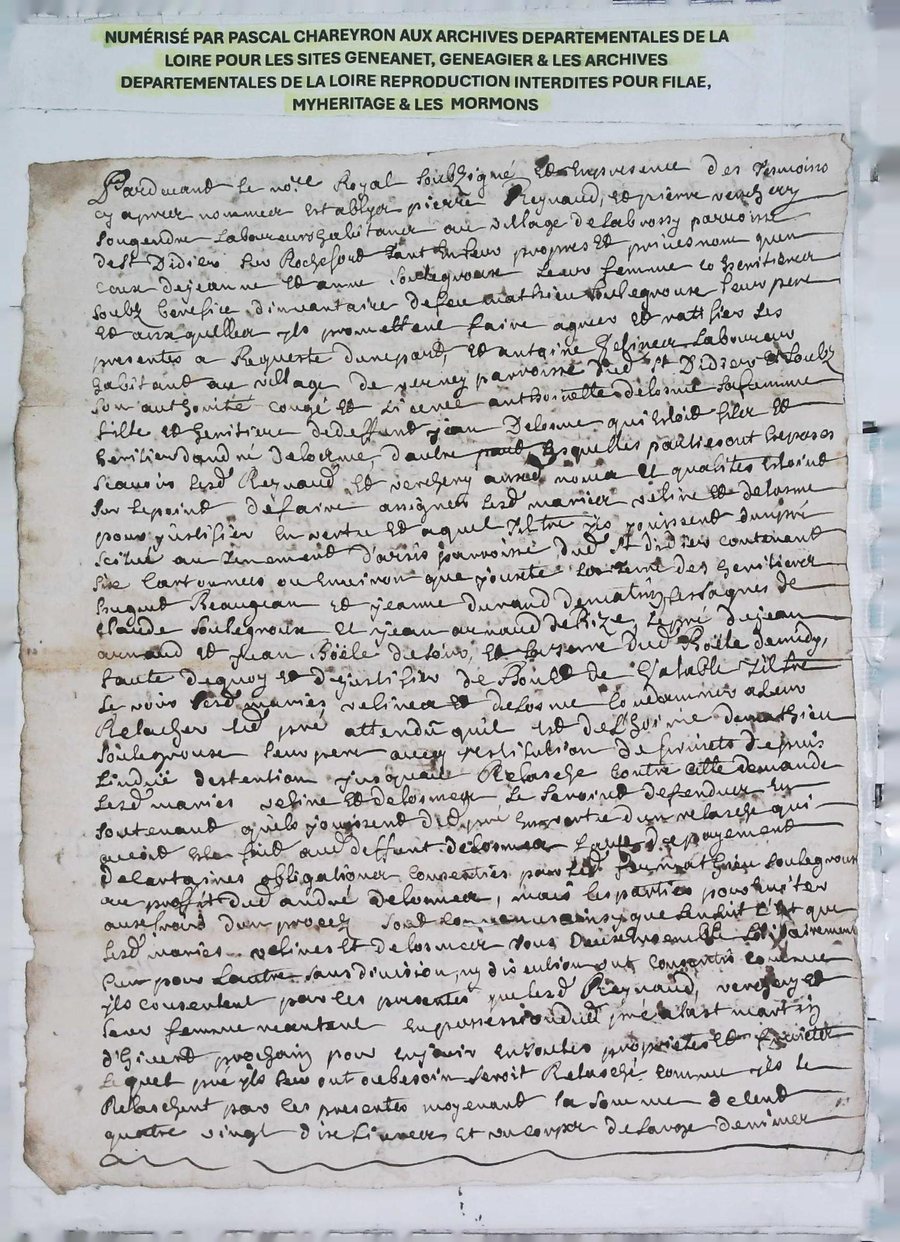 NUMÉRISÉ PAR PASCAL CHAREYRON AUX ARCHIVES DEPARTEMENTALES DE LA
LOIRE POUR LES SITES GENEANET, GENEAGIER & LES ARCHIVES
DEPARTEMENTALES DE LA LOIRE REPRODUCTION INTERDITES POUR FILAE,
MYHERITAGE & LES MORMONS
Pardevant le no.re Royal soubzigné Et En presence des Tesmoins
cy apres nommer Establyer pierre Reynaud, et pierre verchery
son gendre Laboureurs habitaner au village de Labrossy parroisse
de St Didier sur Rochefort tant En leur propres Et privés nom quen
ceux de jeanne Et anne Soulegroux leurs femme co heritierer
soubz benefice dinvantaire de feu mathieu Soulegroux leur pere
Et auxquelles ylz promettent faire agreer Et ratiffier les
presentes a Requeste dunepard, Et antoine Laboureur
habitand au village de verney parroisse dud St Didier Et soubz
son authorité congé Et Licence anthoinette delosme sa femme
fille Et heritiere dedeffunt jean Delosme qui Estoit filer Et
heritier dandré Delosme, dautre part, Lesquelles parties ont Exposés
scavoir Lesd Reynaud Et verchery auxd noms Et qualités Estoint
sur lepoint defaire assigner Lesd marier veline Et delosme
pour justifier En vertu Et aquel Tiltre ylz jouissent dunpré
scitué au Tenement parroisse dud St didier contenant
six Cartonnees ou Environ que jouxte Les Terre des heritierer
hugues Beaujean Et jeanne durand dematin, Les de
claude Soulegroux Et jean arnaud deBize, Le pré dejean
arnaud Et jean Boële desoir, Et la terre dud Boële demidy,
faute dequoy Et dejustifier de Bon Et de Valable Tiltre
se voir lesd mariés veliner Et delosme Condamner adeur
Relacher led pré attendu quil Est de L'hoirie demathieu
Soulegroux leur pere avecq restitution De fruicts depuis
Linduë destention jusquau Relasche Contre cette demande
Lesd mariés veline Et delosmer, se seroint defenduer En
soutenant quels jouissent dud pré En vertu dun relasche qui
avoit Esté faict aud deffunt delosmer de payement
decertaines obligationer Consenties par led feu mathieu Soulegroux
au proffit dud andré delosmer, mais les parties pour Eviter
aux frais dun procez sont ainsy que sensuit C'Est que
Lesd mariés veliner Et delosmer tous deux Ensemble solidairement
Lun pour Lautre sans division, ny discution ont consentis comme
ylz consentent par ces presentes que lesd Reynaud, verchery Et
leur femme rentrent En possession dud pré alast martin
d'hivert prochain pour En jouir En toutes proprietés Et fruictz
Lequel pré ylz leur ont aubesoin seroit Relasché comme ylz le
Relaschent par ces presentes moyenant la somme decent
quatre vingt dix Livrer Et un Corps de Lavoze denimer